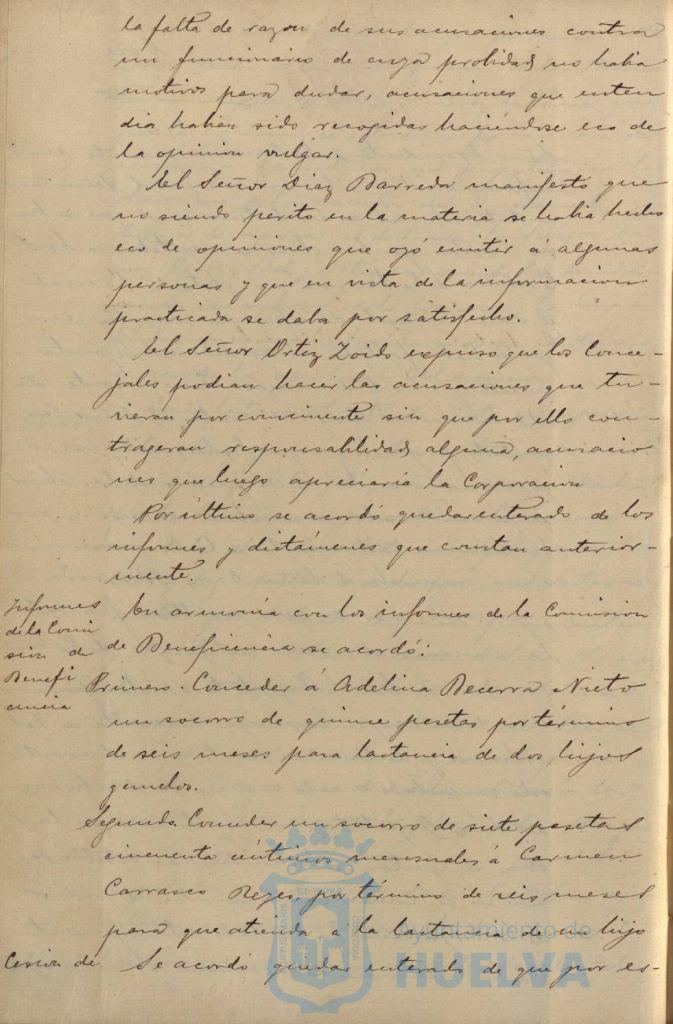 la falta de razon de sus acusaciones contra
un funcionario de cuya probidad no habia
motivos para dudar, acusaciones que enten
dia habian sido recogidas haciéndose eco de
la opinion vulgar.
El Señor Diaz Barreda manifestó que
no siendo perito en la materia se habia hecho
eco de opiniones que oyó emitir á algunas
personas y que en vista de la informacion
practicada se daba por satisfecho.
El Señor Ortiz Zoido expuso que los Conce-
jales podian hacer las acusaciones que tu-
vieran por conveniente sin que por ello con-
trageran responsabilidad alguna, acusacio
nes que luego apreciaría la Corporacion
Por último se acordó quedar enterado de los
informes y dictámenes que constan anterior-
mente.
Informes
de la Comi
sion de
Benefi
cencia
En armonía con los informes de la Comision
de Beneficencia se acordó:
Primero. Conceder á Adelina Becerra Nieto
un socorro de quince pesetas por término
de seis meses para lactancia de dos hijos
gemelos.
Segundo. Conceder un socorro de siete pesetas
cincuenta céntimos mensuales á Carmen
Carrasco Reyes, por término de seis meses
para que atienda á la lactancia de un hijo
Cesion de
Se acordó quedar enterado de que por es-
Ayuntamiento de
HUELVA